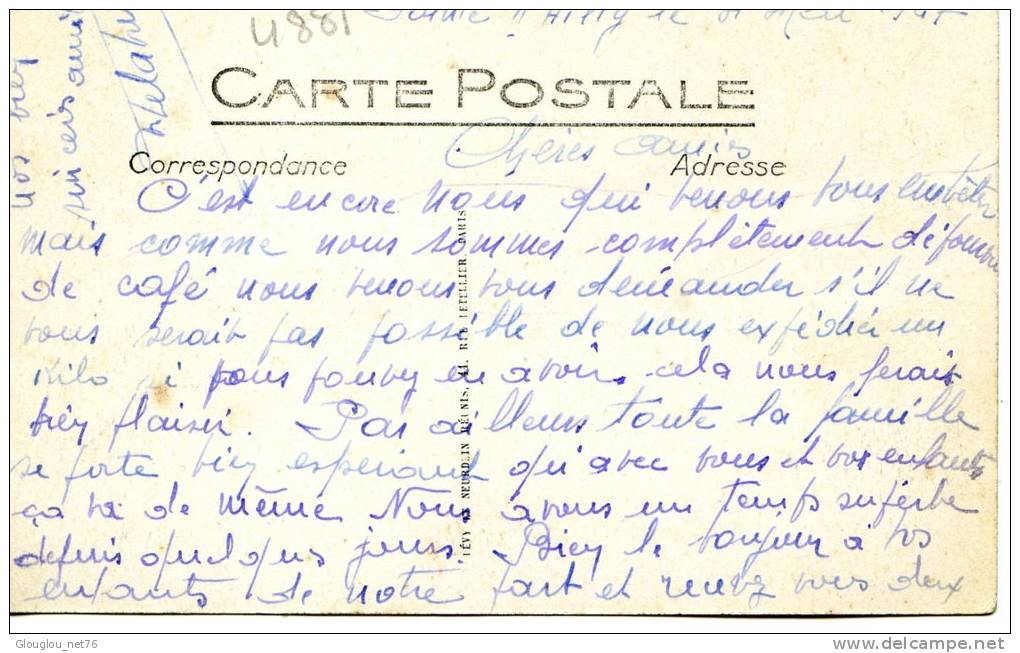 4881
CARTE POSTALE
Correspondance
Adresse
Chères amis
C'est encore nous qui venons vous embêter
mais comme nous sommes complètement
de café nous venons vous demander s'il ne
vous serait pas possible de nous expédier un
kilo si vous pouvez en avoir cela nous ferait
bien plaisir. Par ailleurs toute la famille
se porte bien espérant qu'avec vous et vos enfants
ça va de même Nous avons un temps superbe
depuis quelques jours. Bien le bonjour à vos
enfants de notre part et recevez vous deux
nos bien
sincères amit
LÉVY & NEURDEIN RÉUNIS, 44, RUE LETELLIER, PARIS
Glouglou_net76
delcampe.net